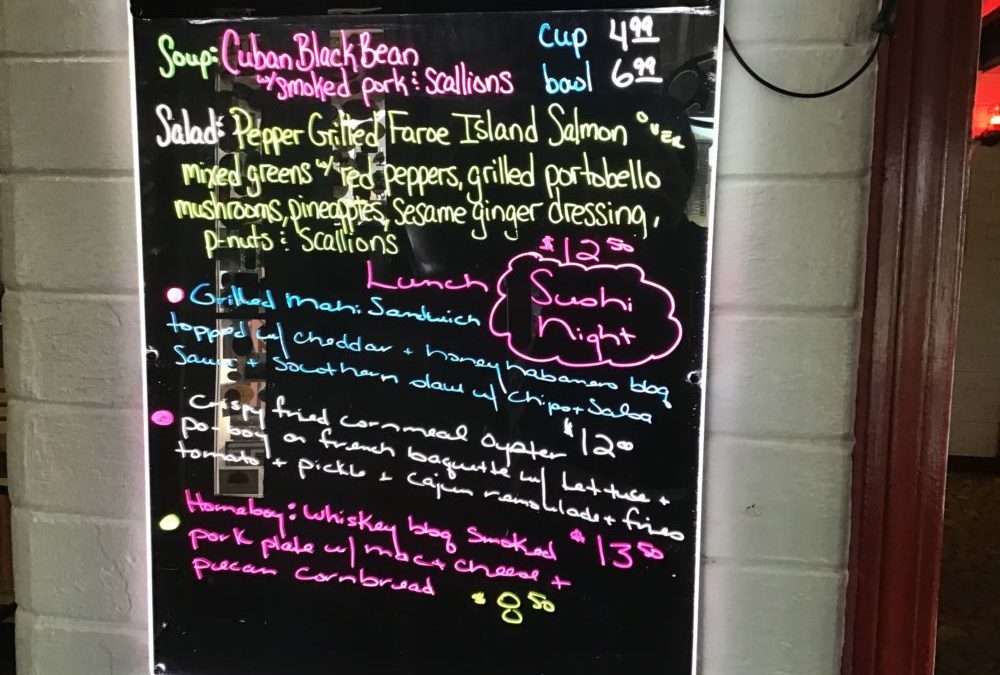 Soup: Cuban Black Bean cup 4.99
w/ smoked pork & scallions bowl 6.99
Salad: Pepper Grilled Faroe Island Salmon over
mixed greens w/ red peppers, grilled portobello
mushrooms, pineapples, sesame ginger dressing,
p-nuts & scallions $12.50
Lunch
Sushi
Night
Grilled Mahi Sandwich
topped w/ cheddar + honey habanero bbq
sauce + southern slaw w/ chips + salsa
$12.00
Crispy fried cornmeal oyster
po-boy on french baguette w/ lettuce +
tomato + pickle + cajun remoulade + fries
$13.50
Homeboy: Whiskey bbq smoked
pork plate w/ mac + cheese +
pecan cornbread $8.50